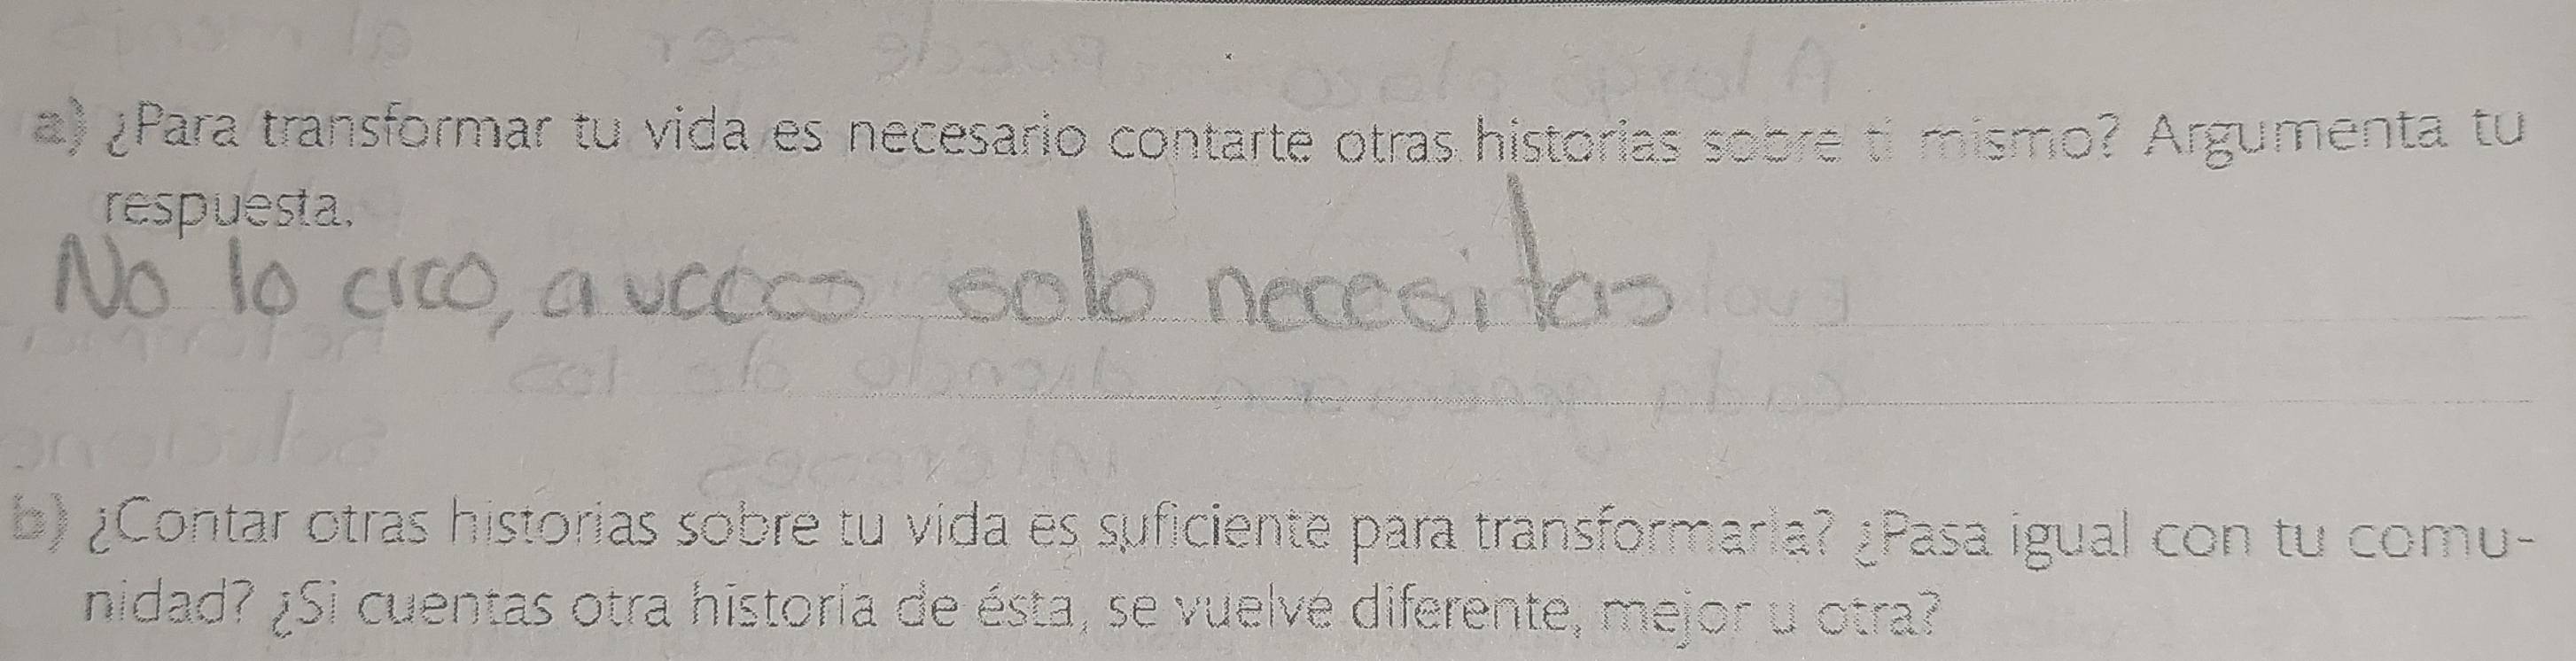 a) ¿Para transformar tu vida es necesario contarte otras historias sobre ti mismo? Argumenta tu
respuesta.
No lo creo, a veces solo necesitas
b) ¿Contar otras historias sobre tu vida es suficiente para transformarla? ¿Pasa igual con tu comu-
nidad? ¿Si cuentas otra historia de ésta, se vuelve diferente, mejor u otra?